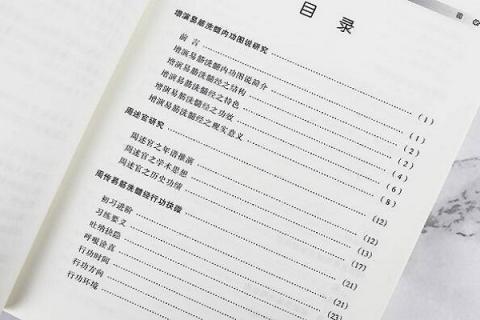 目 录
增演易筋洗髓内功图说研究 (1)
前 言 (1)
增演易筋洗髓内功图说简介 (2)
增演易筋洗髓经之结构 (2)
增演易筋洗髓经之特色 (4)
增演易筋洗髓经之功效 (6)
增演易筋洗髓经之现实意义 (8)
周述官研究 (12)
周述官之年谱推演 (12)
周述官之学术思想 (13)
周述官之历史功绩 (17)
周传易筋洗髓经行功 (21)
初习进阶 (21)
习练要义 (23)
吐纳抉隐
呼吸诠真
行功时间
行功方向
行功环境